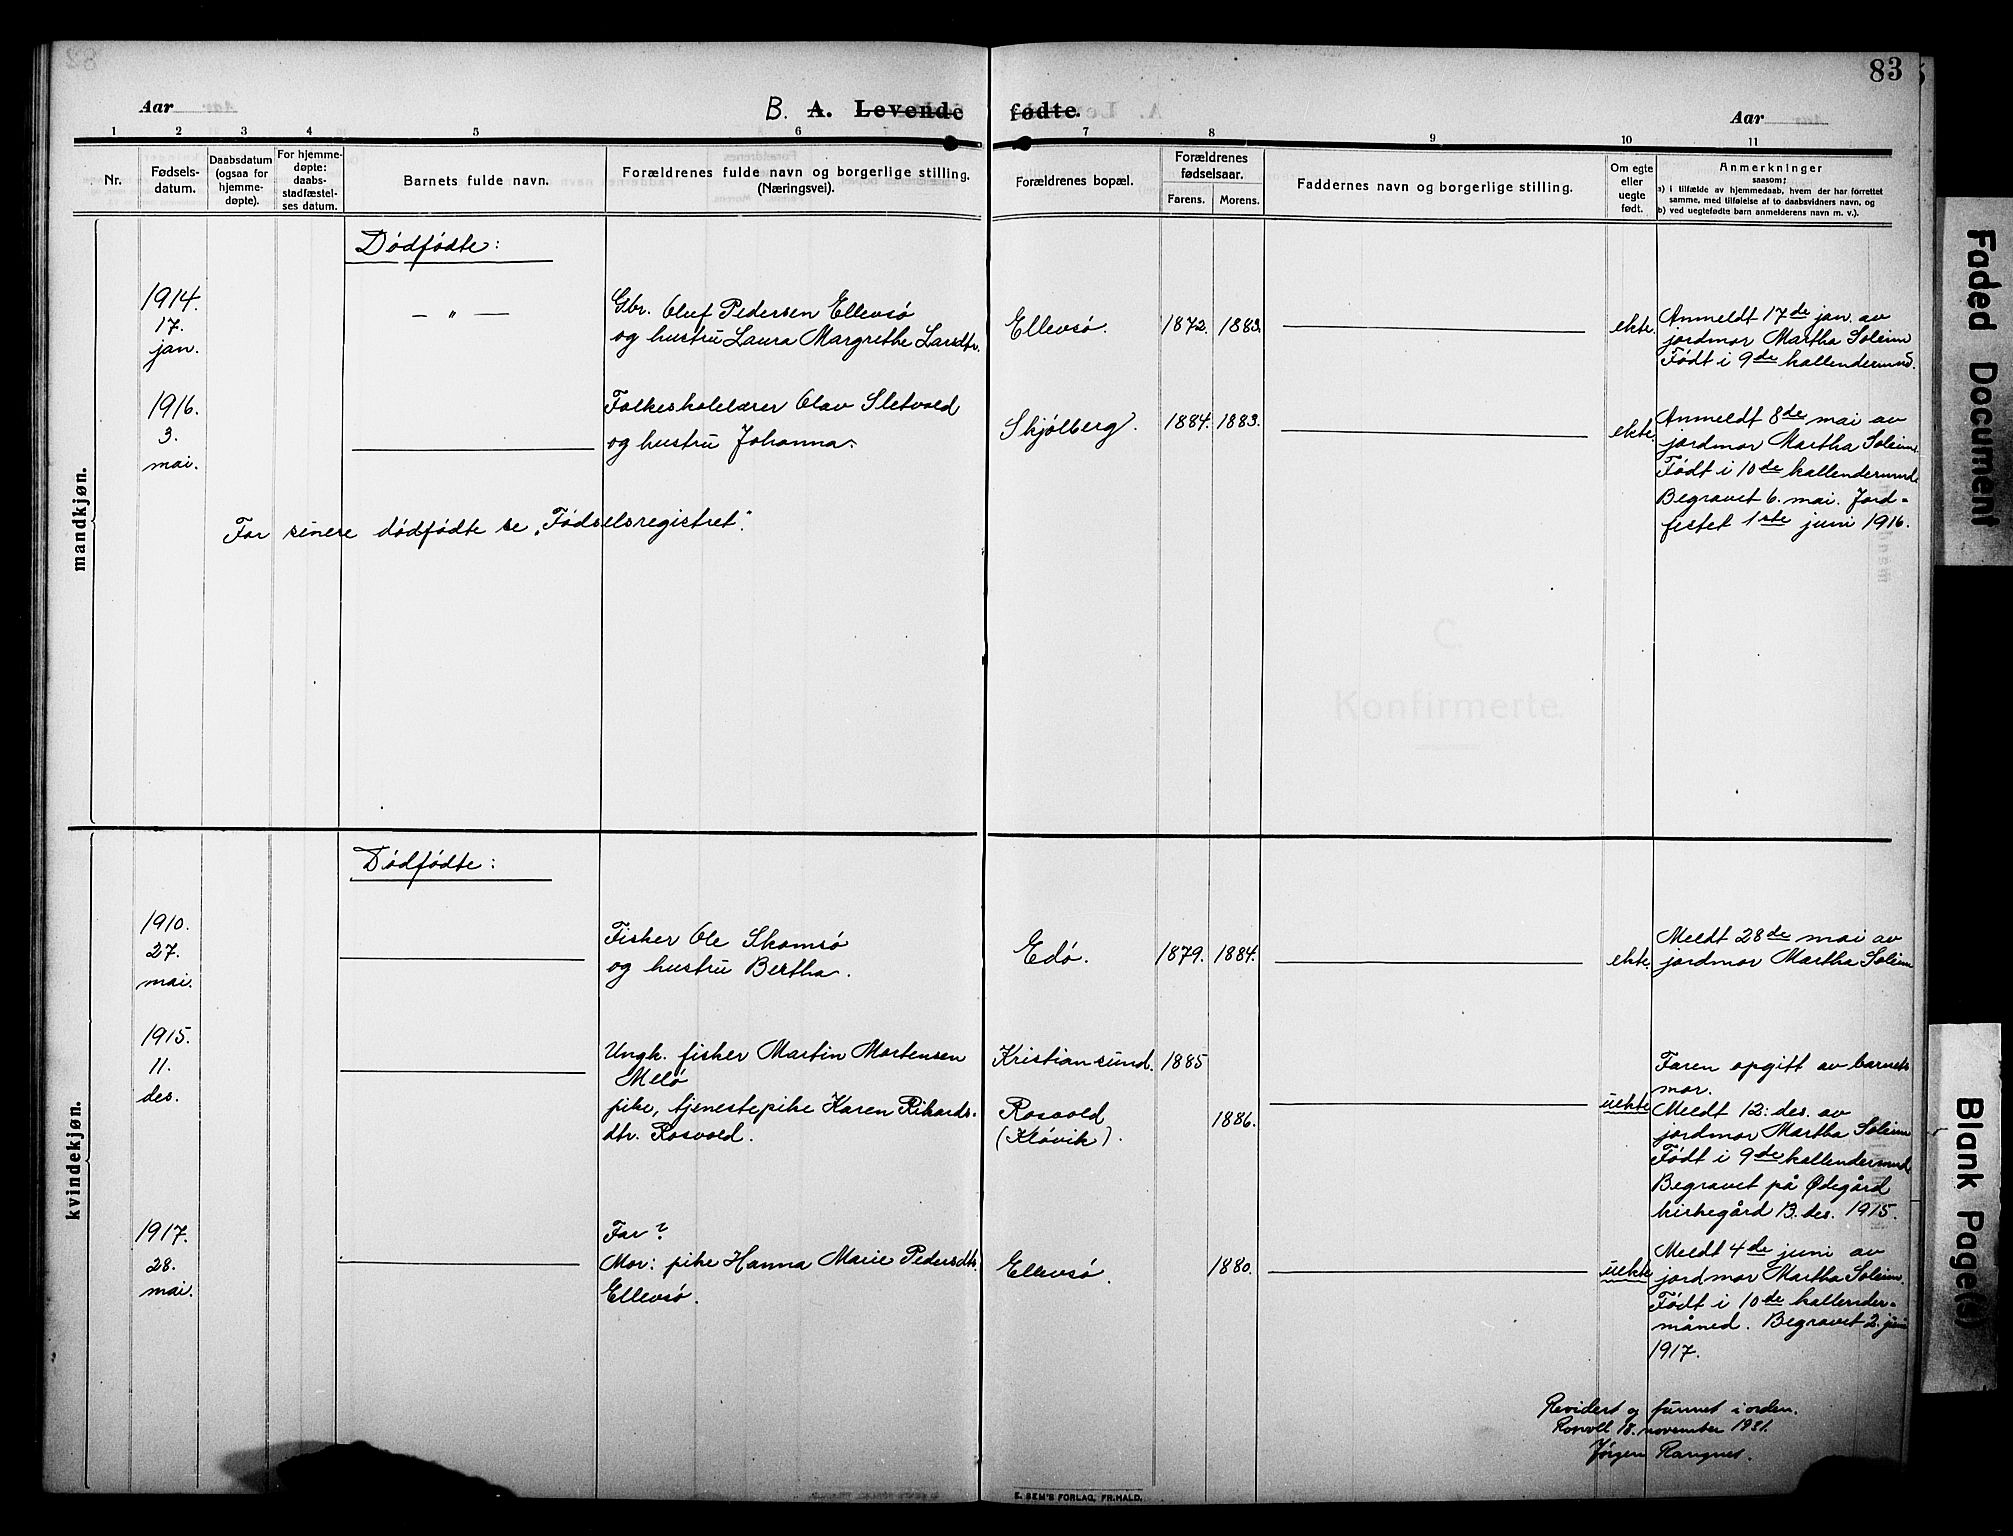 83
Aar
B. A. Levende fødte.
Aar
1 2 3 4 5 6 7 8 9 10 11
Nr.
Fødsels-
datum.
Daabsdatum
(ogsaa for
hjemme-
døpte).
For hjemme-
døpte:
daabs-
stadfæstel-
ses datum.
Barnets fulde navn.
Forældrenes fulde navn og borgerlige stilling.
(Næringsvei).
Forældrenes bopæl.
Forældrenes
fødselsaar.
Farens. Morens.
Faddernes navn og borgerlige stilling.
Om egte
eller
uegte
født.
Anmerkninger
saasom;
a) i tilfælde av hjemmedaab, hvem der har forrettet
samme, med tilføielse af to daabsvidners navn, og
b) ved uegtefødte barn anmelderens navn m. v.).
mandkjøn.
Dødfødte:
1914.
17.
jan.
— " —
Gbr. Oluf Pedersen Ellevsö
og hustru Laura Margrethe Larsdtr.
Ellevsö.
1872. 1883.
ekte.
Anmeldt 17de jan. av
jordmor Martha Soleim
Født i 9de kallendermnd.
1916.
3.
mai.
Folkeskolelærer Olav Sletvold
og hustru Johanna.
Skjølberg.
1884. 1883.
ekte.
Anmeldt 8de mai av
jordmor Martha Soleim.
Født i 10de kallendermnd.
Begravet 6. mai. Jord-
festet 1ste juni 1916.
For senere dødfødte se „Fødselsregistret".
kvindekjøn.
Dødfødte:
1910.
27.
mai.
Fisker Ole Skomsö
og hustru Bertha.
Edö.
1879. 1884.
ekte.
Meldt 28de mai av
jordmor Martha Soleim
1915.
11.
des.
Ungk. fisker Martin Mortensen
Melö
pike, tjenestepike Karen Rikards-
dtr. Rosvold.
Kristiansund. 1885
Rosvold
(Kløvik).
1886.
uekte
Faren opgitt av barnets
mor.
Meldt 12. des. av
jordmor Martha Soleim
Født i 9de kallendermnd.
Begravet på Ødegård
kirkegård 13. des. 1915.
1917.
28.
mai.
Far?
Mor: pike Hanna Marie Pedersdtr.
Ellevsö.
Ellevsö.
1880.
uekte
Meldt 4de juni av
jordmor Martha Soleim.
Født i 10de kallender-
måned. Begravet 2. juni
1917.
Revidert og funnet i orden.
18. november 1931.
Jørgen
E. SEM'S FORLAG, FR.HALD.
C.
Konfirmerte
Faded Document
Blank Page(s)